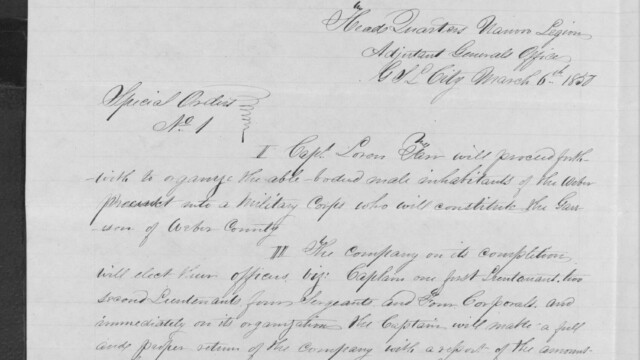 Head Quarters Nauvoo Legion
Adjutant Generals Office
G S L City March 6th 1850
Special Orders
No 1
I Capt. Loren Farr will proceed forth
with to organize the able bodied male inhabitants of the Weber
precinct into a Military Corps who will constitute the Garri
son of Weber County
II The company on its completion
will elect their officers viz: Captain one first Lieutenant, two
second Lieutenants four Sergeants and Four Corporals, and
immediately on its organization the Captain will make a full
and proper return of the company with a report of the amount